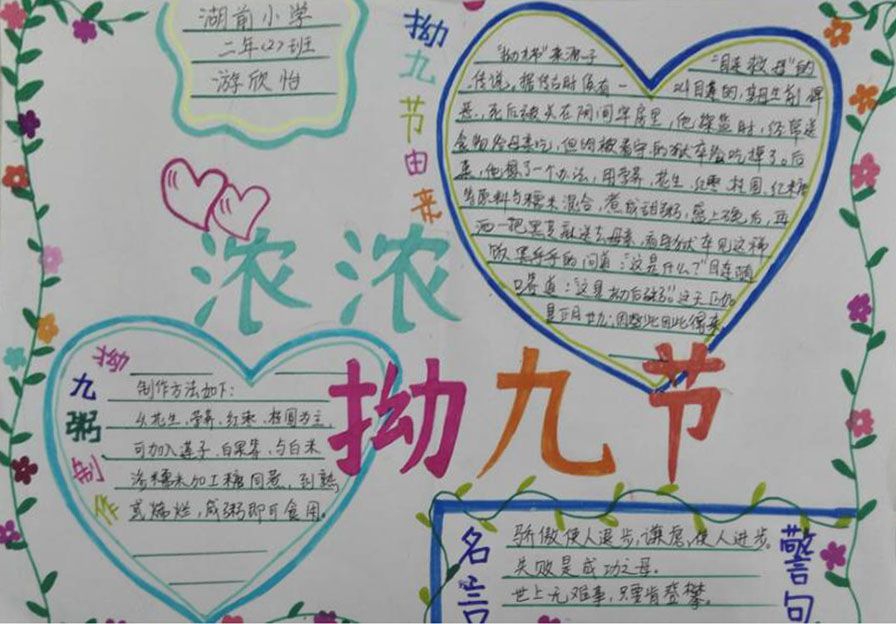 湖前小学
二年(2)班
游欣怡
拗九节由来
"拗九节"来源于 "目连救母"的
传说。据传古时候有一 叫目连的,其母生前
恶,死后被关在阴间牢房里,他探监时,经常送
食物给母亲吃,但均被看守的狱卒给吃掉了。后
来,他想了一个办法,用荸荠、花生、红枣、桂圆、红糖
等原料与糯米混合,煮成甜粥,盛上碗后,再
洒一把黑芝麻送去母亲,看守狱卒见这种
黑乎乎的问道:"这是什么?"目连随
口答道:"这是拗后粥"。这天正
是正月廿九,因此得来
浓浓
拗九节
拗九粥制作
制作方法如下:
以花生、荸荠、红枣、桂圆为主,
可加入莲子、白果等,与白米
糯米加工糖同煮,到熟
或烯烂,成粥即可食用。
名言警句
骄傲使人退步,谦虚使人进步。
失败是成功之母。
世上无难事,只要肯登攀。